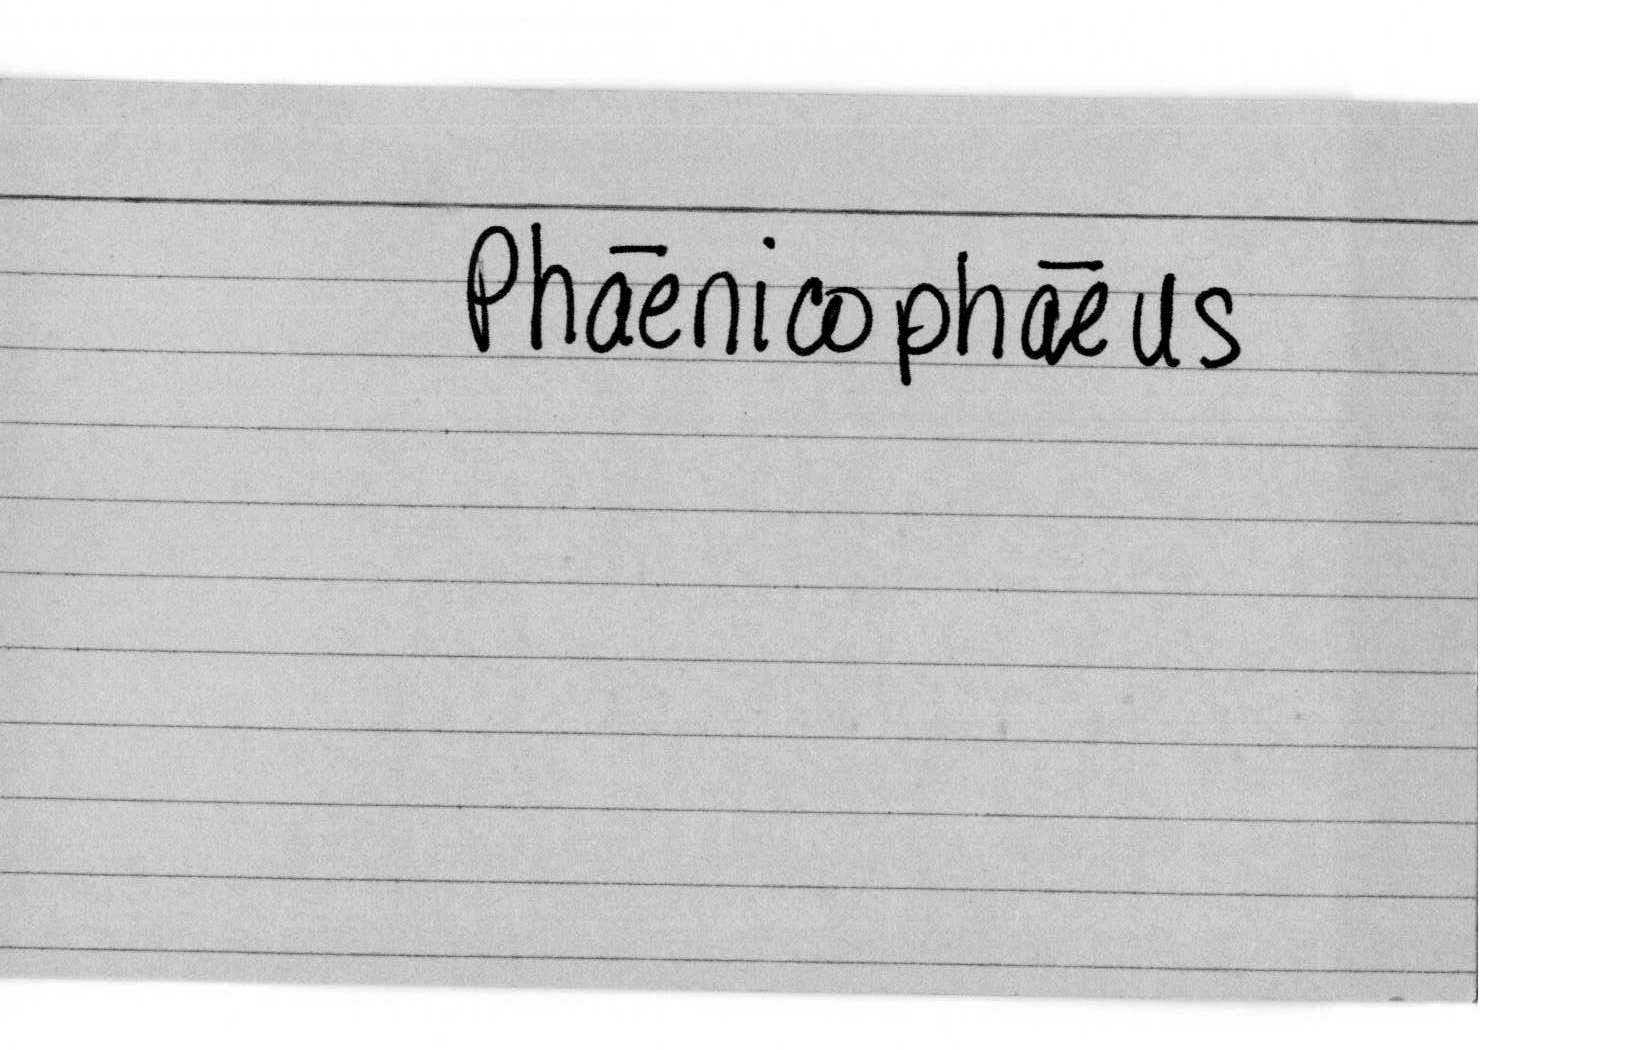 Phāēnicophāēus